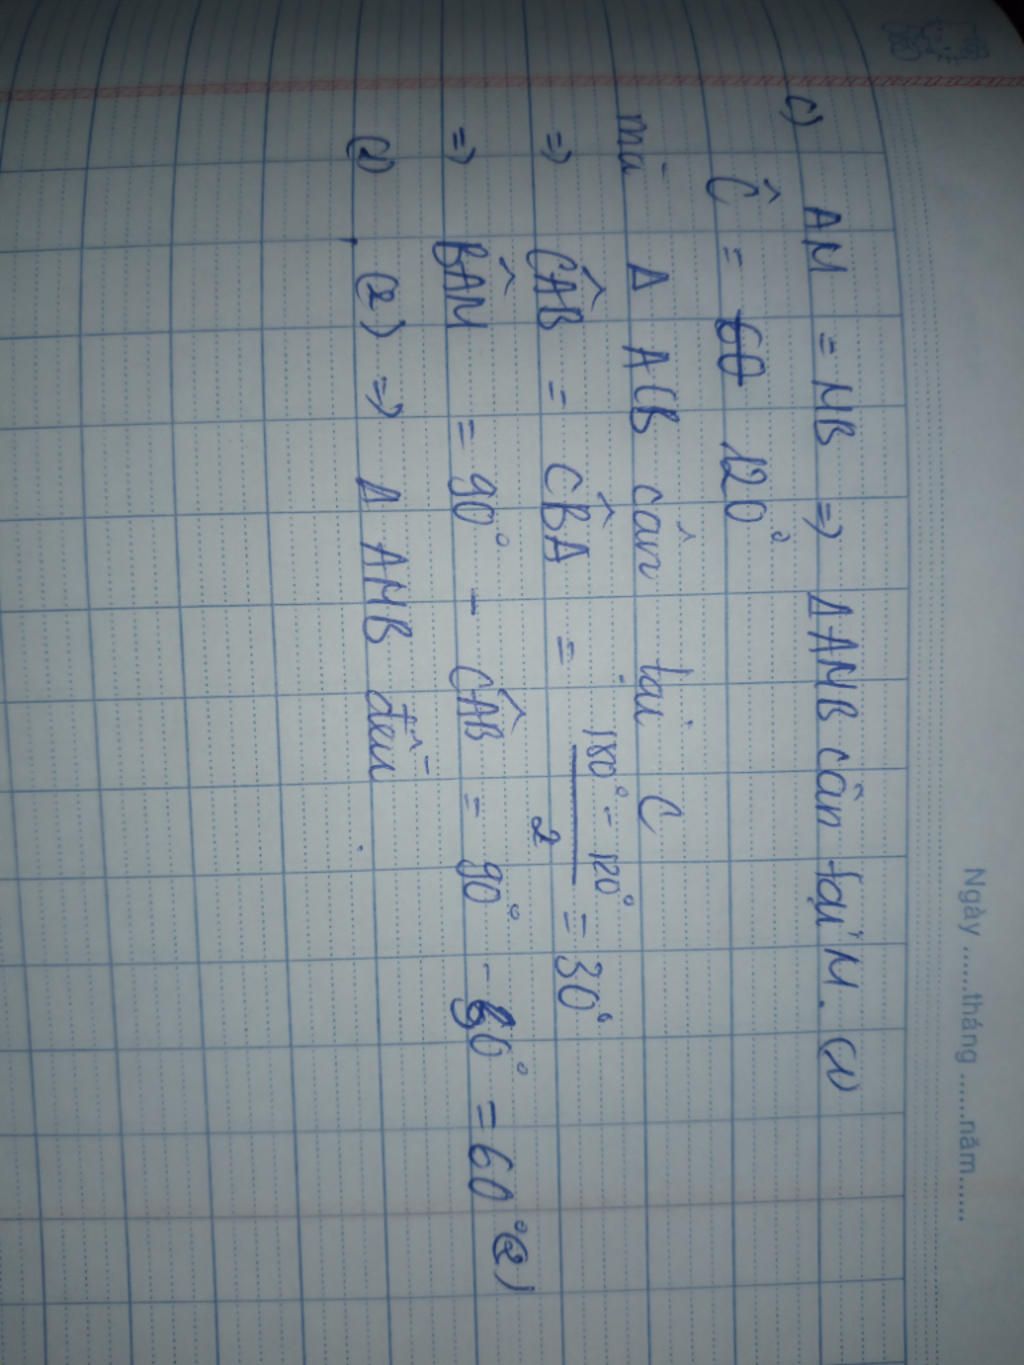 Ngày ......tháng ......năm......
c) AM = MB => Δ AMB cân tại M. (1)
Ĉ = 120°
mà Δ ACB cân tại C
=> CÂB = CB̂A = (180° - 120°)/2 = 30°
=> BÂM = 90° - CÂB = 90° - 30° = 60° (2)
(1), (2) => Δ AMB đều